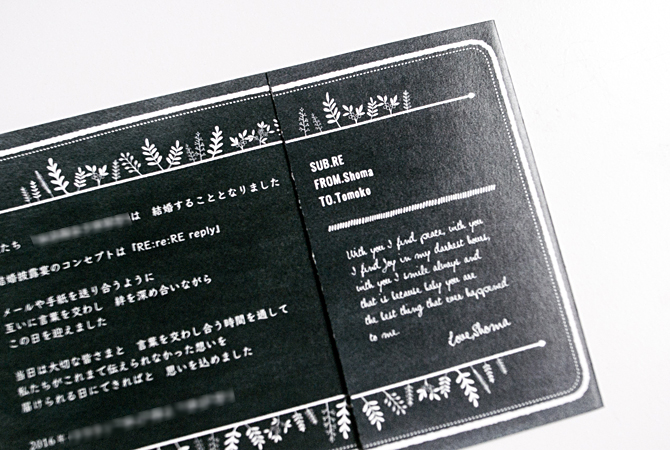 たち は 結婚することとなりました
結婚披露宴のコンセプトは『RE:re:RE reply』
メールや手紙を送り合うように
互いに言葉を交わし 絆を深め合いながら
この日を迎えました
当日は大切な皆さまと 言葉を交わし合う時間を通して
私たちがこれまで伝えられなかった想いを
届けられる日にできればと 想いを込めました
2016年
SUB.RE
FROM.Shoma
TO.Tomoko
With you I find peace, with you
I find joy in my darkest hours,
with you I smile always and
that is because baby you are
the best thing that ever happened
to me.
Love, Shoma